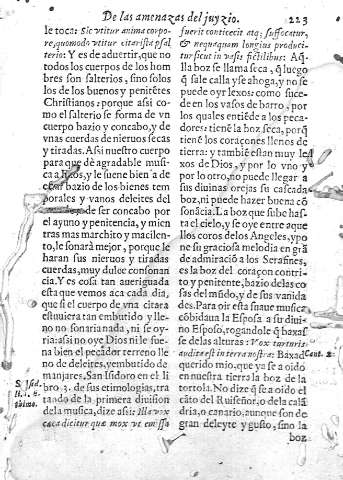 De las amenazas del juyzio. 223
le toca: Sic vtitur anima corpo-
re, quomodo vtitur citarista psal
terio: Y es de aduertir, que no
todos los cuerpos de los hom-
bres son salterios, sino solos
los de los buenos y penitẽtes
Christianos: porque asi co
mo el salterio se forma de vn
cuerpo bazio y concabo, y de
vnas cuerdas de nieruos secas
y tiradas. Asi nuestro cuerpo
para que dè agradable musi-
ca a Dios, y le suene bien a de
bazio de los bienes tem
porales y vanos deleites del
de ser concabo por
el ayuno y penitencia, y mien
tras mas marchito y macilen-
to, le sonarà mejor, porque le
haran sus nieruos y tiradas
cuerdas, muy dulce consonan
cia. Y es cosa tan aueriguada
esta que vemos aca cada dia,
que si el cuerpo de vna citara
estuuiera tan embutido y lle-
no no sonaria nada, ni se oy-
ria: asi no oye Dios ni le sue-
na bien el pecador terreno lle
no de deleites, y embutido de
manjares. San Isidoro en el li
bro 3. de sus etimologias, tra
tando de la primera diuision
dela musica, dize asi: Illa vox
caca dicitur quæ mox vt emissa
S. Isid.
fuerit conticecit atq; suffocatur,
& nequaquam longius produci-
tur sicut in vasis fictilibus: Aq̃-
lla boz se llama seca, q̃ luego
q̃ sale calla y se ahoga, y no se
puede oyr lexos: como suce-
de en los vasos de barro, por
los quales entiẽde a los peca-
dores: tienẽ la boz seca, porq̃
tienẽ los coraçones llenos de
tierra: y tambiẽ estan muy le
xos de Dios, y por lo vno y
por lo otro, no puede llegar a
sus diuinas orejas su cascada
boz, ni puede hazer buena cõ
sonãcia. La boz que sube has-
ta el cielo, y se oye entre aque
llos coros delos Angeles, y po
ne su graciosa melodia en grã
de admiraciõ a los Serafines,
es la boz del coraçon contri-
to y penitente, bazio delas co
sas del mũdo, y de sus vanida
des. Para oir esta suaue musica
cõbidaua la Esposa a su diui-
no Esposo, rogandole q̃ baxas
se delas alturas: Vox turturis
audita est in terra nostra: Baxad
querido mio, que ya se a oido
en nuestra tierra la boz de la
tortola. No dize q̃ se a oido el
cãto del Ruiseñor, o dela calã
dria, o canario, aunque son de
gran deleyte y gusto, sino la
boz
Cant. 2.